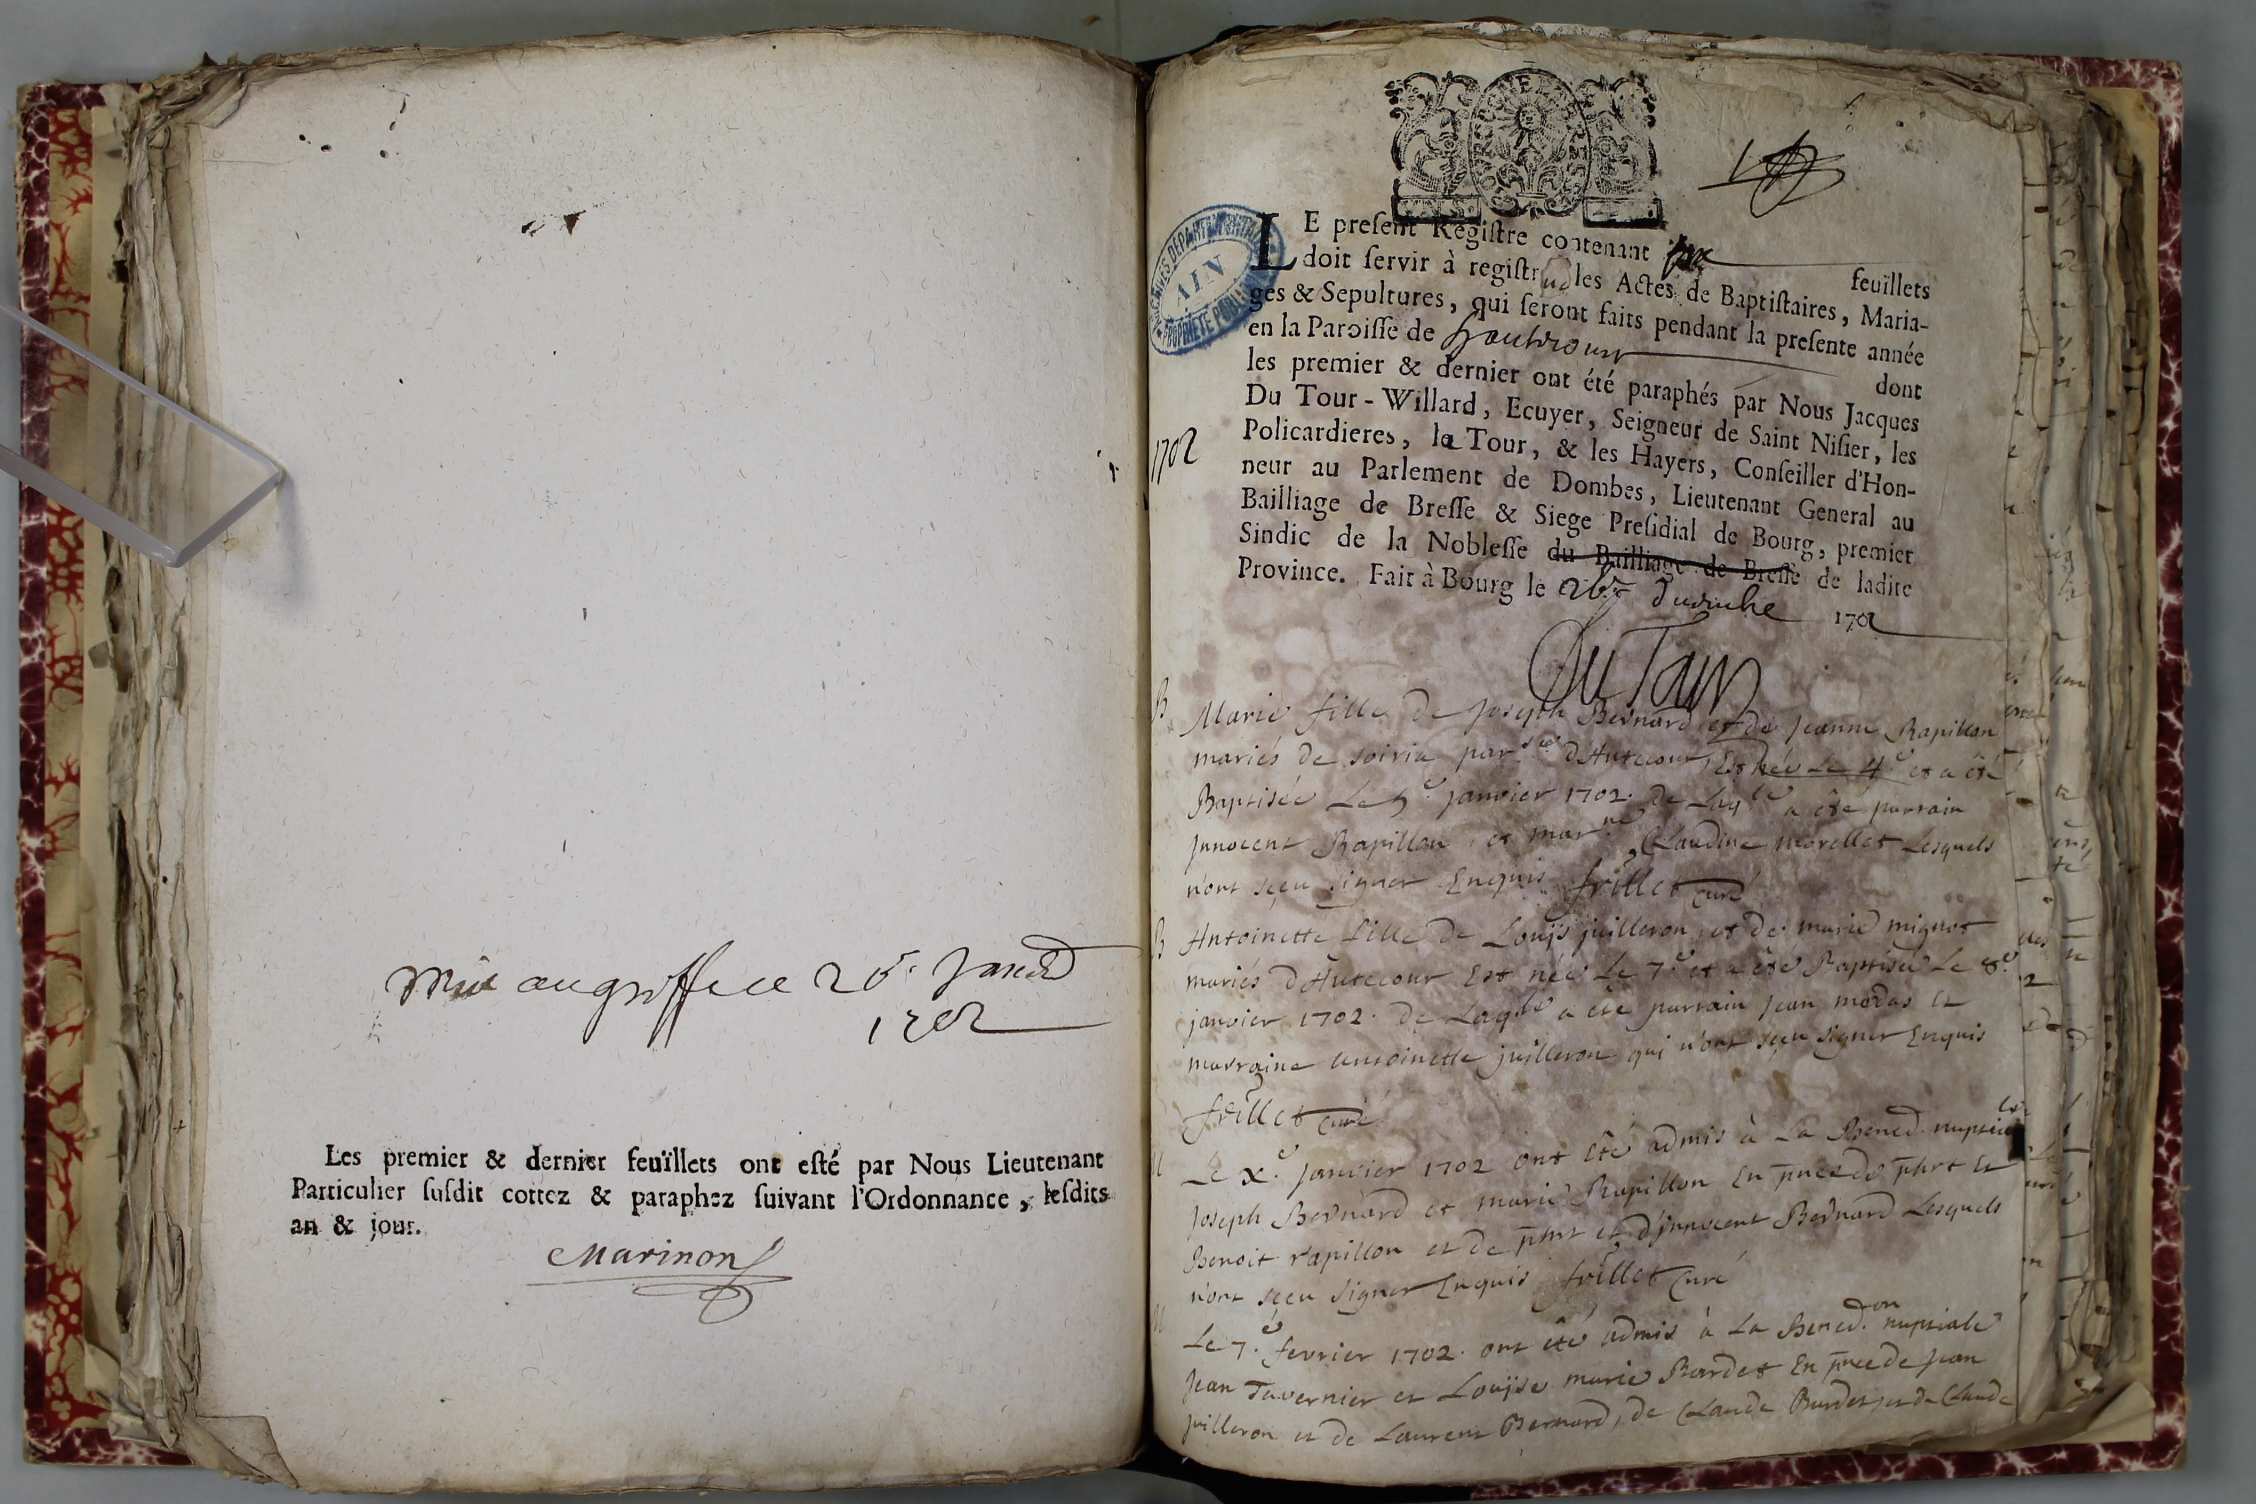 Mis au greffe ce 26e Janv
1702
Les premier & dernier feuïllets ont esté par Nous Lieutenant
Particulier susdit cottez & paraphez suivant l'Ordonnance, lesdits
an & jour.
Marinon
GENERALITE
ARCHIVES DEPARTEMENTALES
AIN
PROPRIETE PUBLIQUE
LE present Registre contenant feuillets
doit servir à registrer les Actes de Baptistaires, Maria-
ges & Sepultures, qui seront faits pendant la presente année
en la Paroisse de hautecour dont
les premier & dernier ont été paraphés par Nous Jacques
Du Tour-Willard, Ecuyer, Seigneur de Saint Nisier, les
Policardieres, la Tour, & les Hayers, Conseiller d'Hon-
neur au Parlement de Dombes, Lieutenant General au
Bailliage de Bresse & Siege Presidial de Bourg, premier
Sindic de la Noblesse du Bailliage de Bresse de ladite
Province. Fait à Bourg le 1702
1702
Du Tour
B
Marie fille de Joseph Bernard et de Jeanne Rapillon
mariés de soiria par.sse d'Hutecour Est née Le 4e et a été
Baptisée Le 5e janvier 1702. de Laqle a été parrain
jnnocent Rapillon et marne Claudine morellet Lesquels
n'ont sçeu signer Enquis frillet Curé
B
Antoinette fille de Louïs juilleron et de marie mignot
mariés d'Hutecour Est née Le 7e et a été Baptisée Le 8e
janvier 1702. de Laqle a été parrain jean modas Et
marraine antoinette juilleron qui n'ont sçeu signer Enquis
frillet Curé
M
Le X.e janvier 1702 ont été admis à La Bened. nuptiale
Joseph Bernard et marie Rapillon En pnce de phrt Et
Benoit rapillon et de phrt et d'jnnocent Bernard Lesquels
n'ont sçeu signer Enquis frillet Curé
M
Le 7.e fevrier 1702. ont été admis à La Bened.on nuptiale
Jean Tavernier et Louïse marie Bardet En pnce de Jean
juilleron et de Laurent Bernard, de Claude Burdet, et de Claude